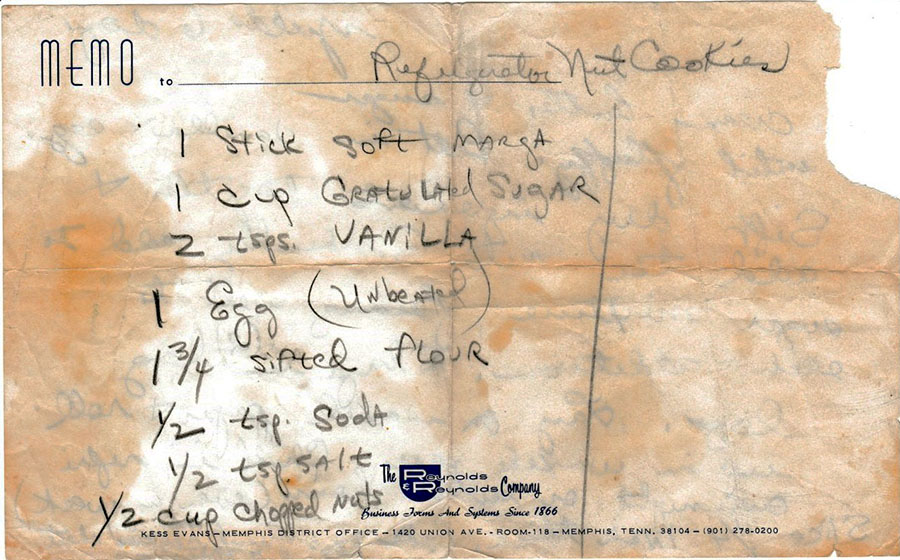 MEMO
to Refrigerator Nut Cookies
1 Stick soft MARGA
1 cup GRATULATED SUGAR
2 tsps. VANILLA
1 Egg (Unbeated)
1 3/4 sifted flour
1/2 tsp. Soda
1/2 tsp SALT
1/2 cup chopped nuts
The Reynolds & Reynolds Company
Business Forms And Systems Since 1866
KESS EVANS—MEMPHIS DISTRICT OFFICE—1420 UNION AVE.-ROOM-118—MEMPHIS, TENN. 38104—(901) 278-0200